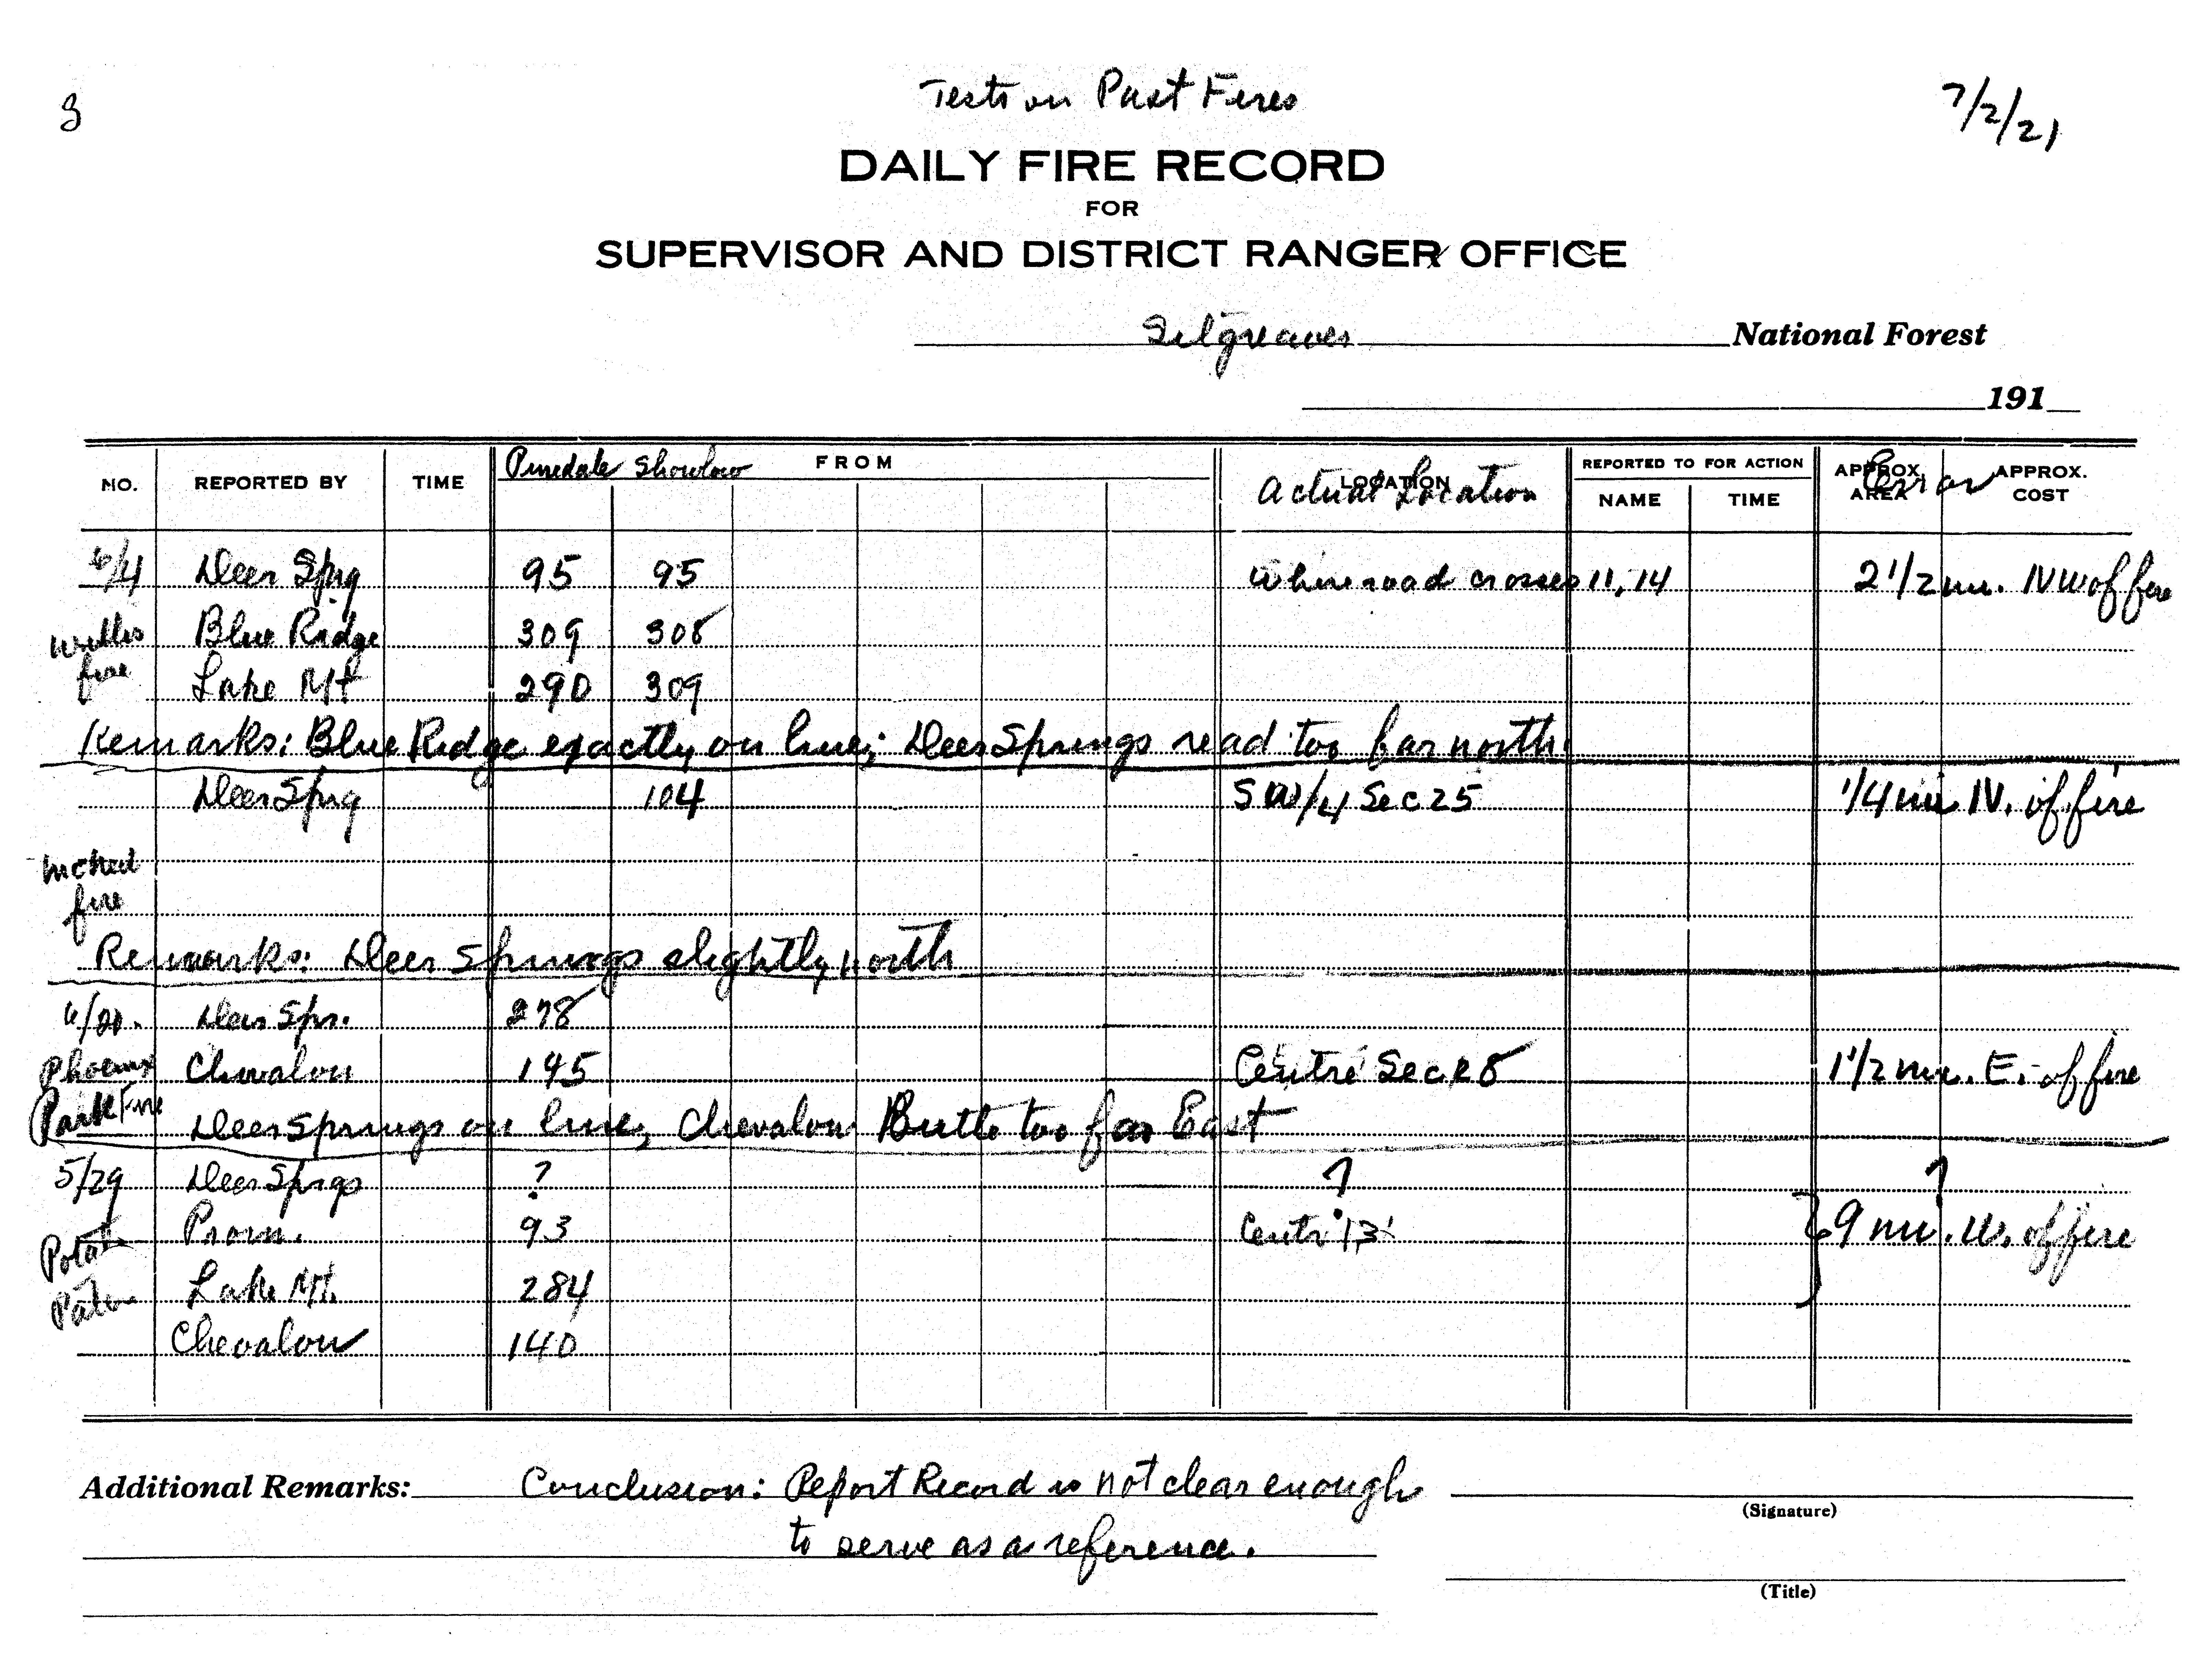 3
Tests on Past Fires
7/2/21
DAILY FIRE RECORD
FOR
SUPERVISOR AND DISTRICT RANGER OFFICE
Sitgreaves National Forest
191
NO. REPORTED BY TIME Pinedale Showlow FROM LOCATION Actual Location REPORTED TO FOR ACTION NAME TIME APPROX. AREA Error APPROX. COST
6/4 Deer Sprg 95 95 Where road crosses 11, 14 2 1/2 mi. NW of fire
Blue Ridge 309 308
fire Lake Mt 290 309
Remarks: Blue Ridge exactly on line; Deer Springs read too far north
Deer Sprg 104 SW/4 Sec 25 1/4 mi N. of fire
fire
Remarks: Deer Springs slightly north
6/20. Deer Spr. 278
Phoenix Chevalon 145 Centre Sec 28 1 1/2 mi. E. of fire
Park Fire Deer Springs on line, Chevalon Butte too far East
5/29 Deer Sprgs ? ? ?
Prom. 93 Centr 13 9 mi. W. of fire
Lake Mt. 284
Chevalon 140
Additional Remarks: Conclusion: Report Record is not clear enough
to serve as a reference.
(Signature)
(Title)